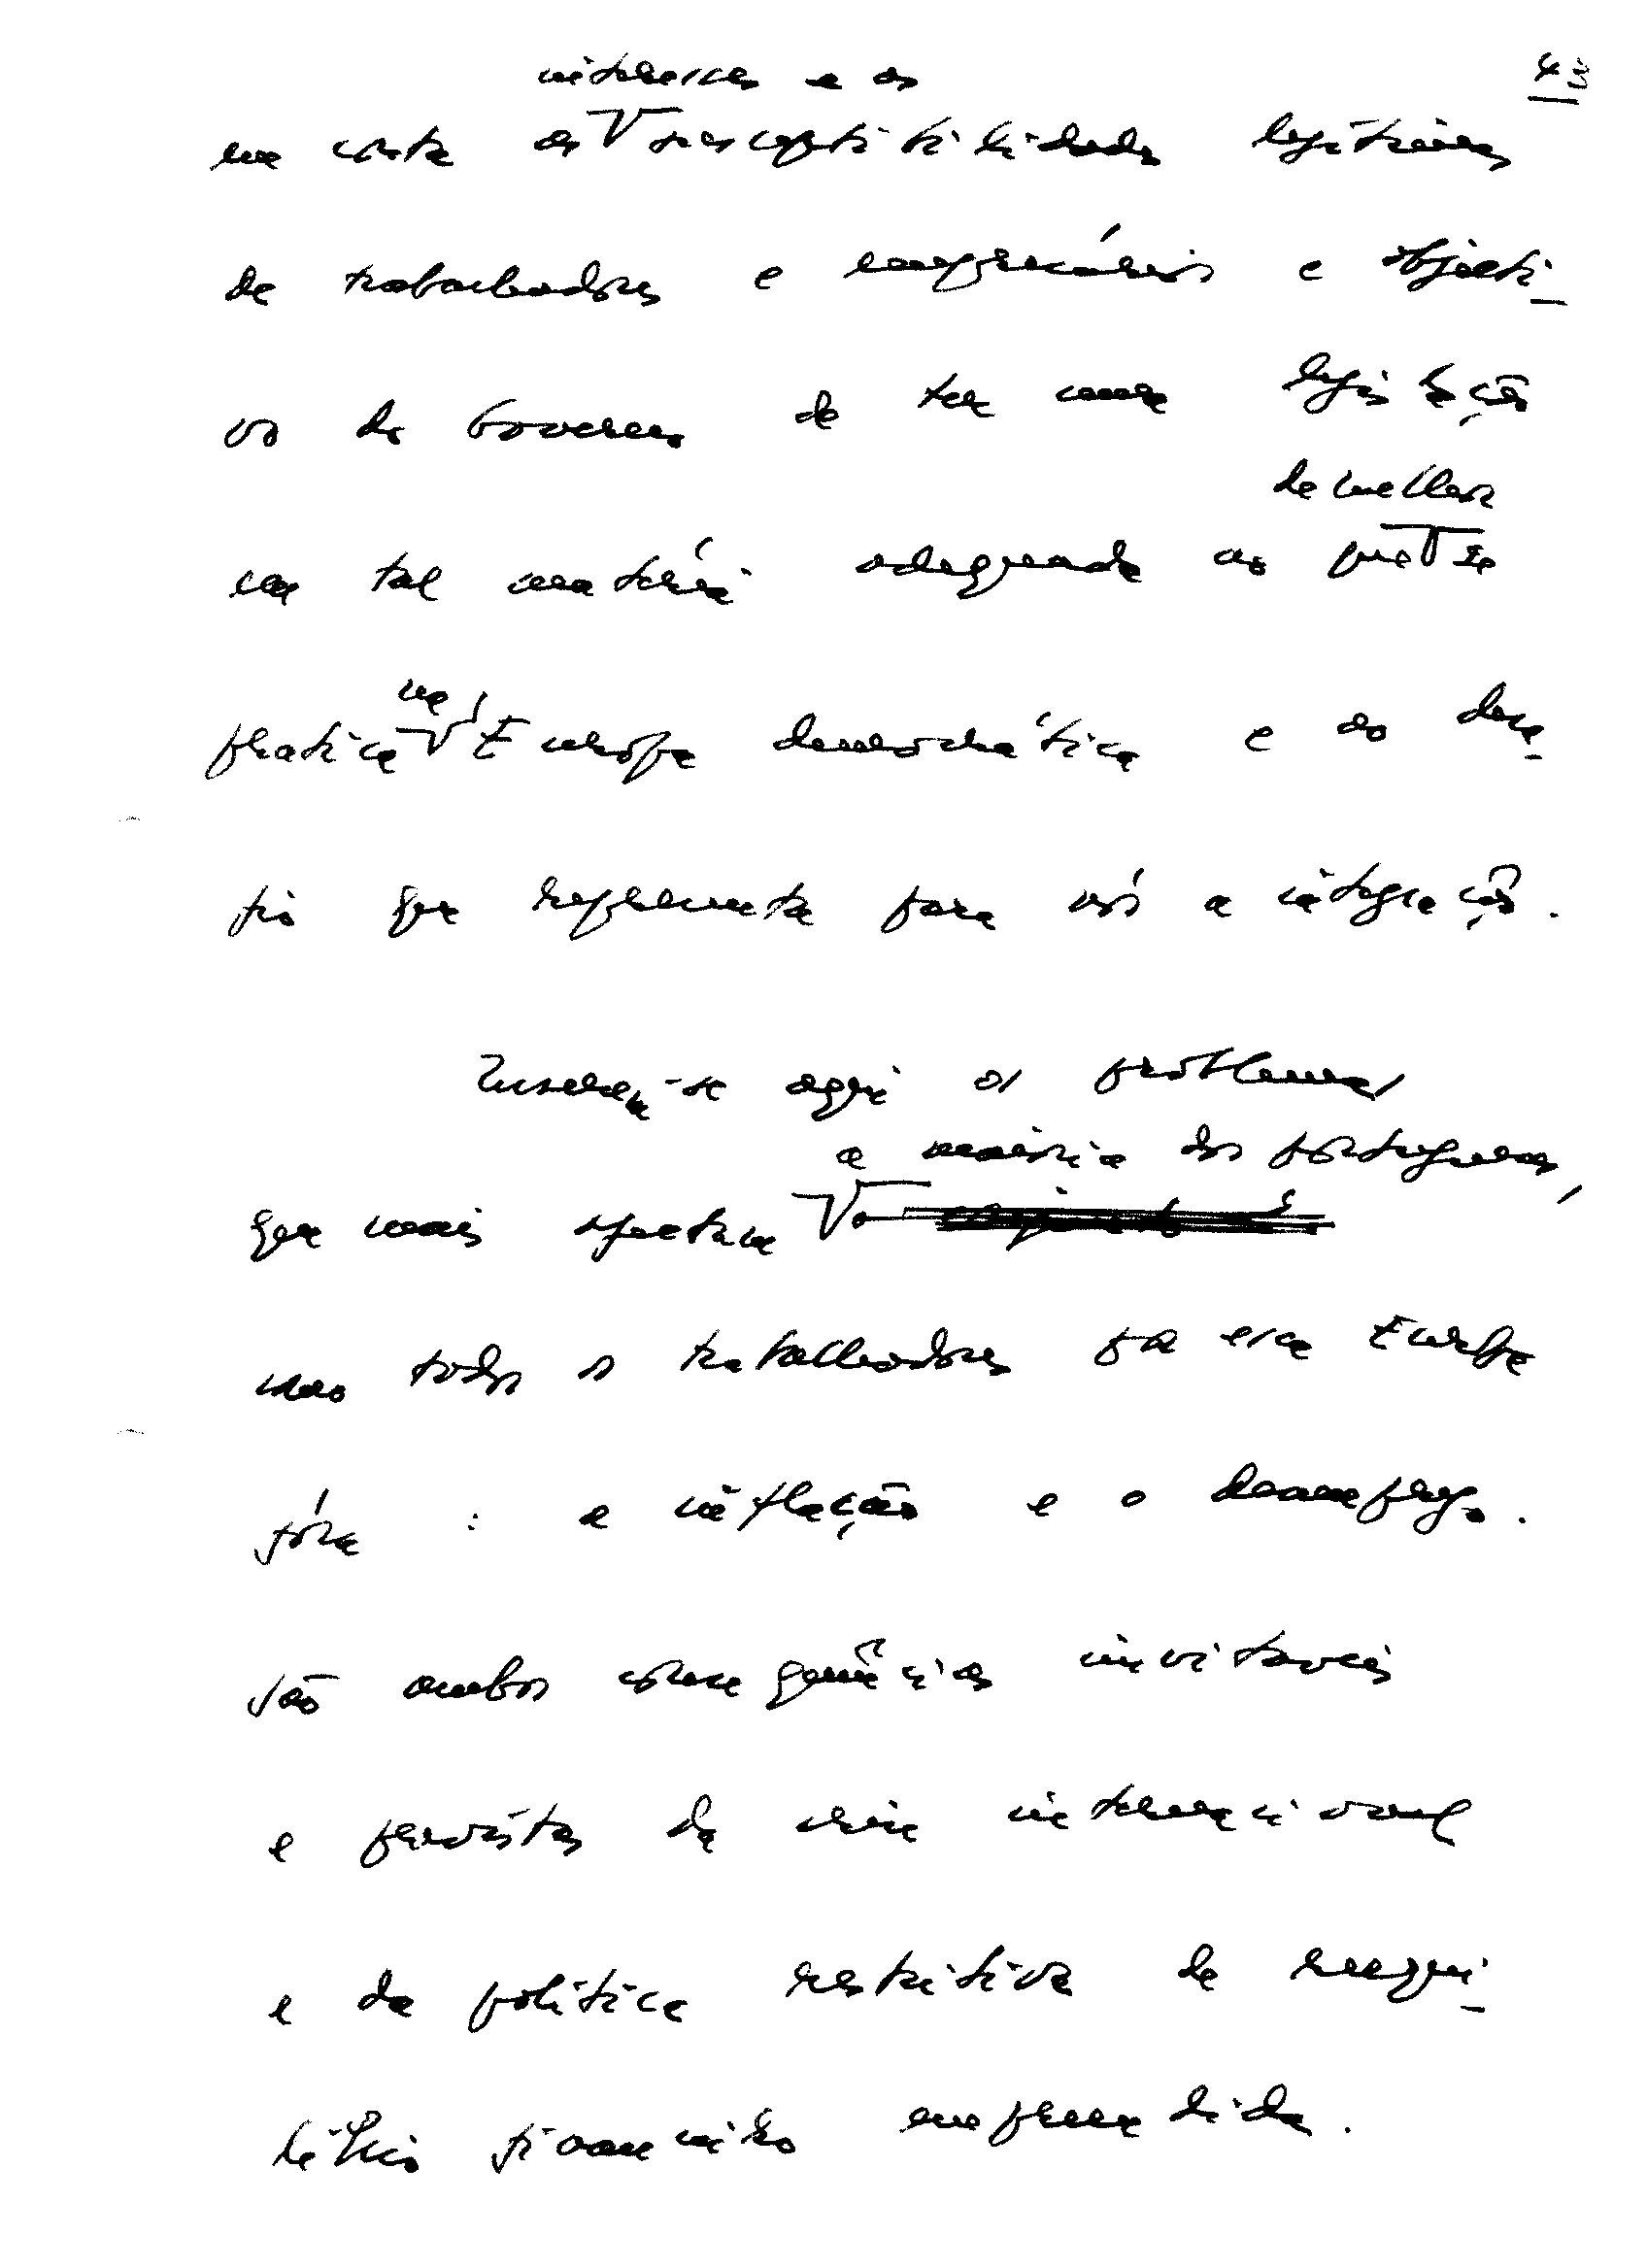 43
interesses e as
em conta os susceptibilidades legítimas
de trabalhadores e empresários e objecti-
vo do Governo de ter uma legislação
de melhor
em tal matéria adequada ao que se
na
pratica Europa democrática e ao desa-
fio que representa para nós a integração.
Inserem-se aqui os problemas
a maioria dos portugueses,
que mais afectam o
mas todos os trabalhadores por essa Europa
fóra : a inflação e o desemprego.
São ambos consequências inevitáveis
e previstas da crise internacional
e da política restritiva de reequi-
líbrio financeiro empreendida.